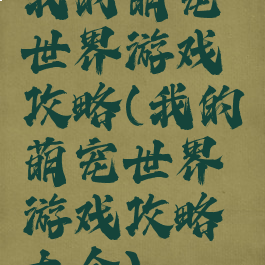 我的萌宠
世界游戏
攻略(我的
萌宠世界
游戏攻略
大全)